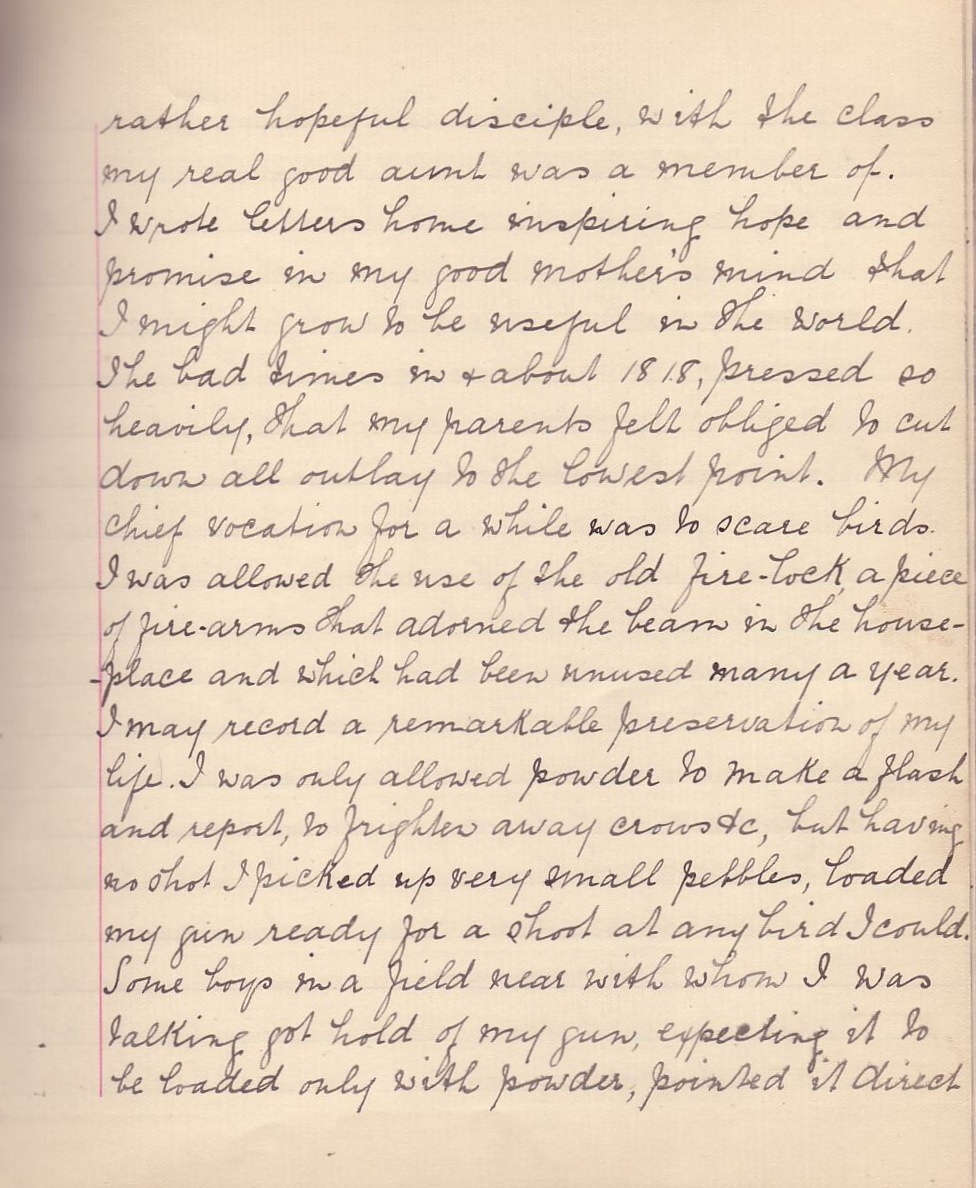 rather hopeful disciple, with the class
my real good aunt was a member of.
I wrote letters home inspiring hope and
promise in my good mother's mind that
I might grow to be useful in the world.
The bad times in & about 1818, pressed so
heavily, that my parents felt obliged to cut
down all outlay to the lowest point. My
chief vocation for a while was to scare birds.
I was allowed the use of the old fire-lock, a piece
of fire-arms that adorned the beam in the house-
-place and which had been unused many a year.
I may record a remarkable preservation of my
life. I was only allowed powder to make a flash
and report, to frighten away crows &c, but having
no shot I picked up very small pebbles, loaded
my gun ready for a shoot at any bird I could.
Some boys in a field near with whom I was
talking got hold of my gun, expecting it to
be loaded only with powder, pointed it direct